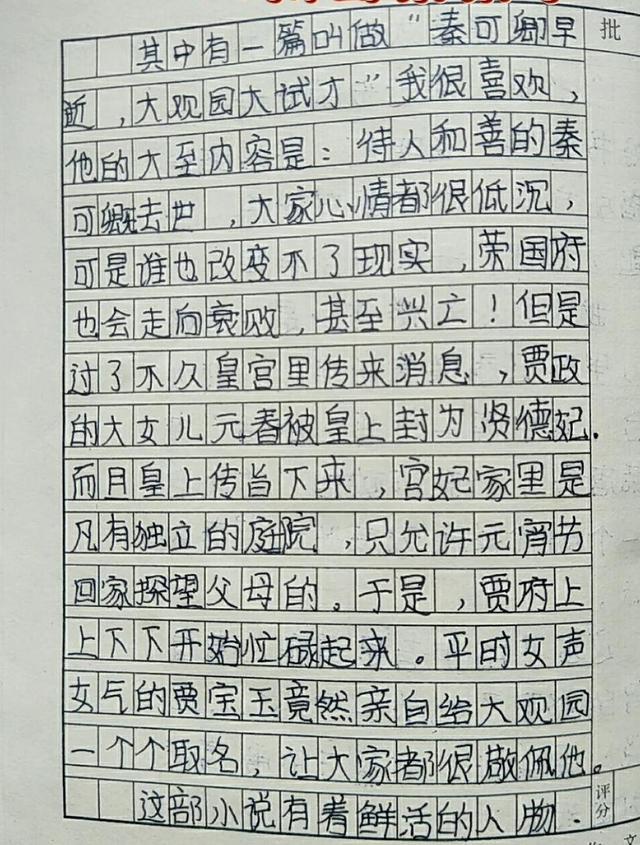 批
其中有一篇叫做“秦可卿早
逝，大观园大试才”我很喜欢，
他的大至内容是：待人和善的秦
可卿去世，大家心情都很低沉，
可是谁也改变不了现实，荣国府
也会走向衰败，甚至兴亡！但是
过了不久皇宫里传来消息，贾政
的大女儿元春被皇上封为贤德妃.
而且皇上传旨下来，宫妃家里是
凡有独立的庭院，只允许元宵节
回家探望父母的。于是，贾府上
上下下开始忙碌起来。平时女声
女气的贾宝玉竟然亲自给大观园
一个个取名，让大家都很敬佩他。
这部小说有着鲜活的人物.
评分